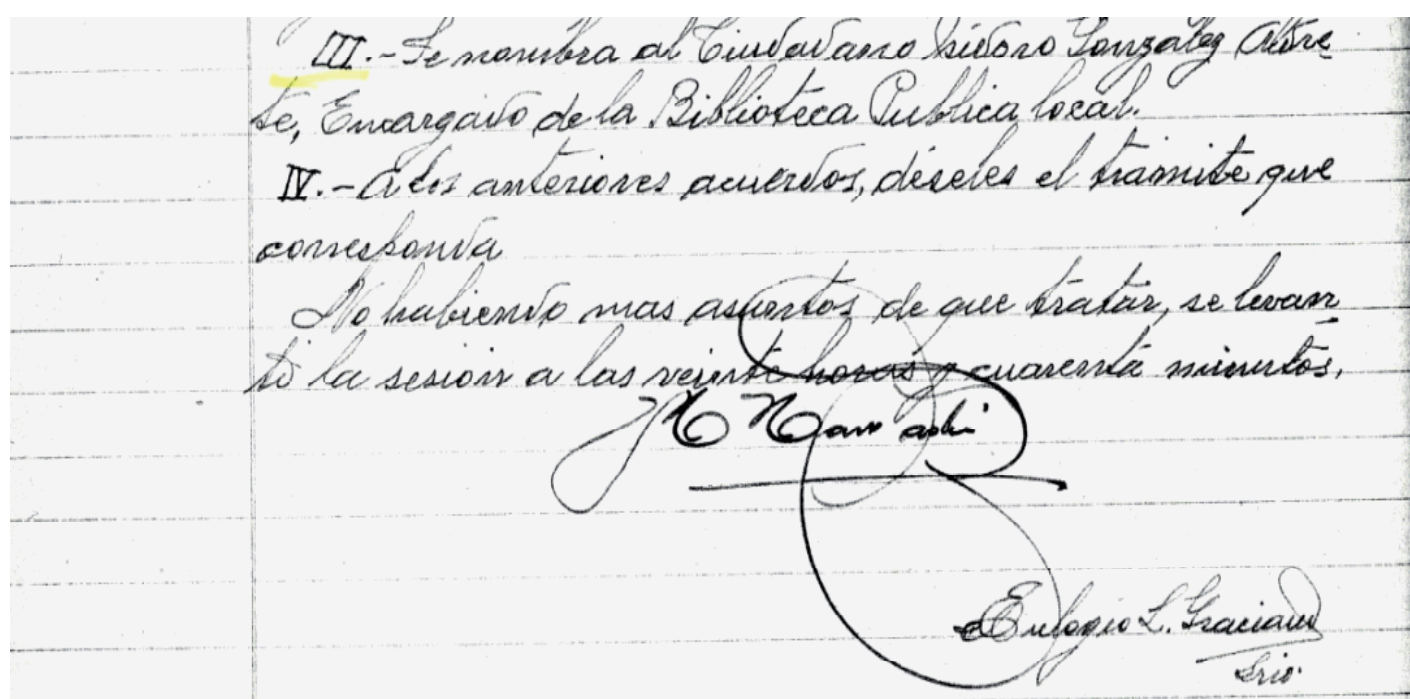 III.- Se nombra al Ciudadano Isidoro González
te, Encargado de la Biblioteca Publica local.
IV.- A los anteriores acuerdos, déseles el trámite que
corresponda
No habiendo mas asuntos de que tratar, se levan
tó la sesion a las veinte horas y cuarenta minutos.
Eulogio L. Graciano
Srio.